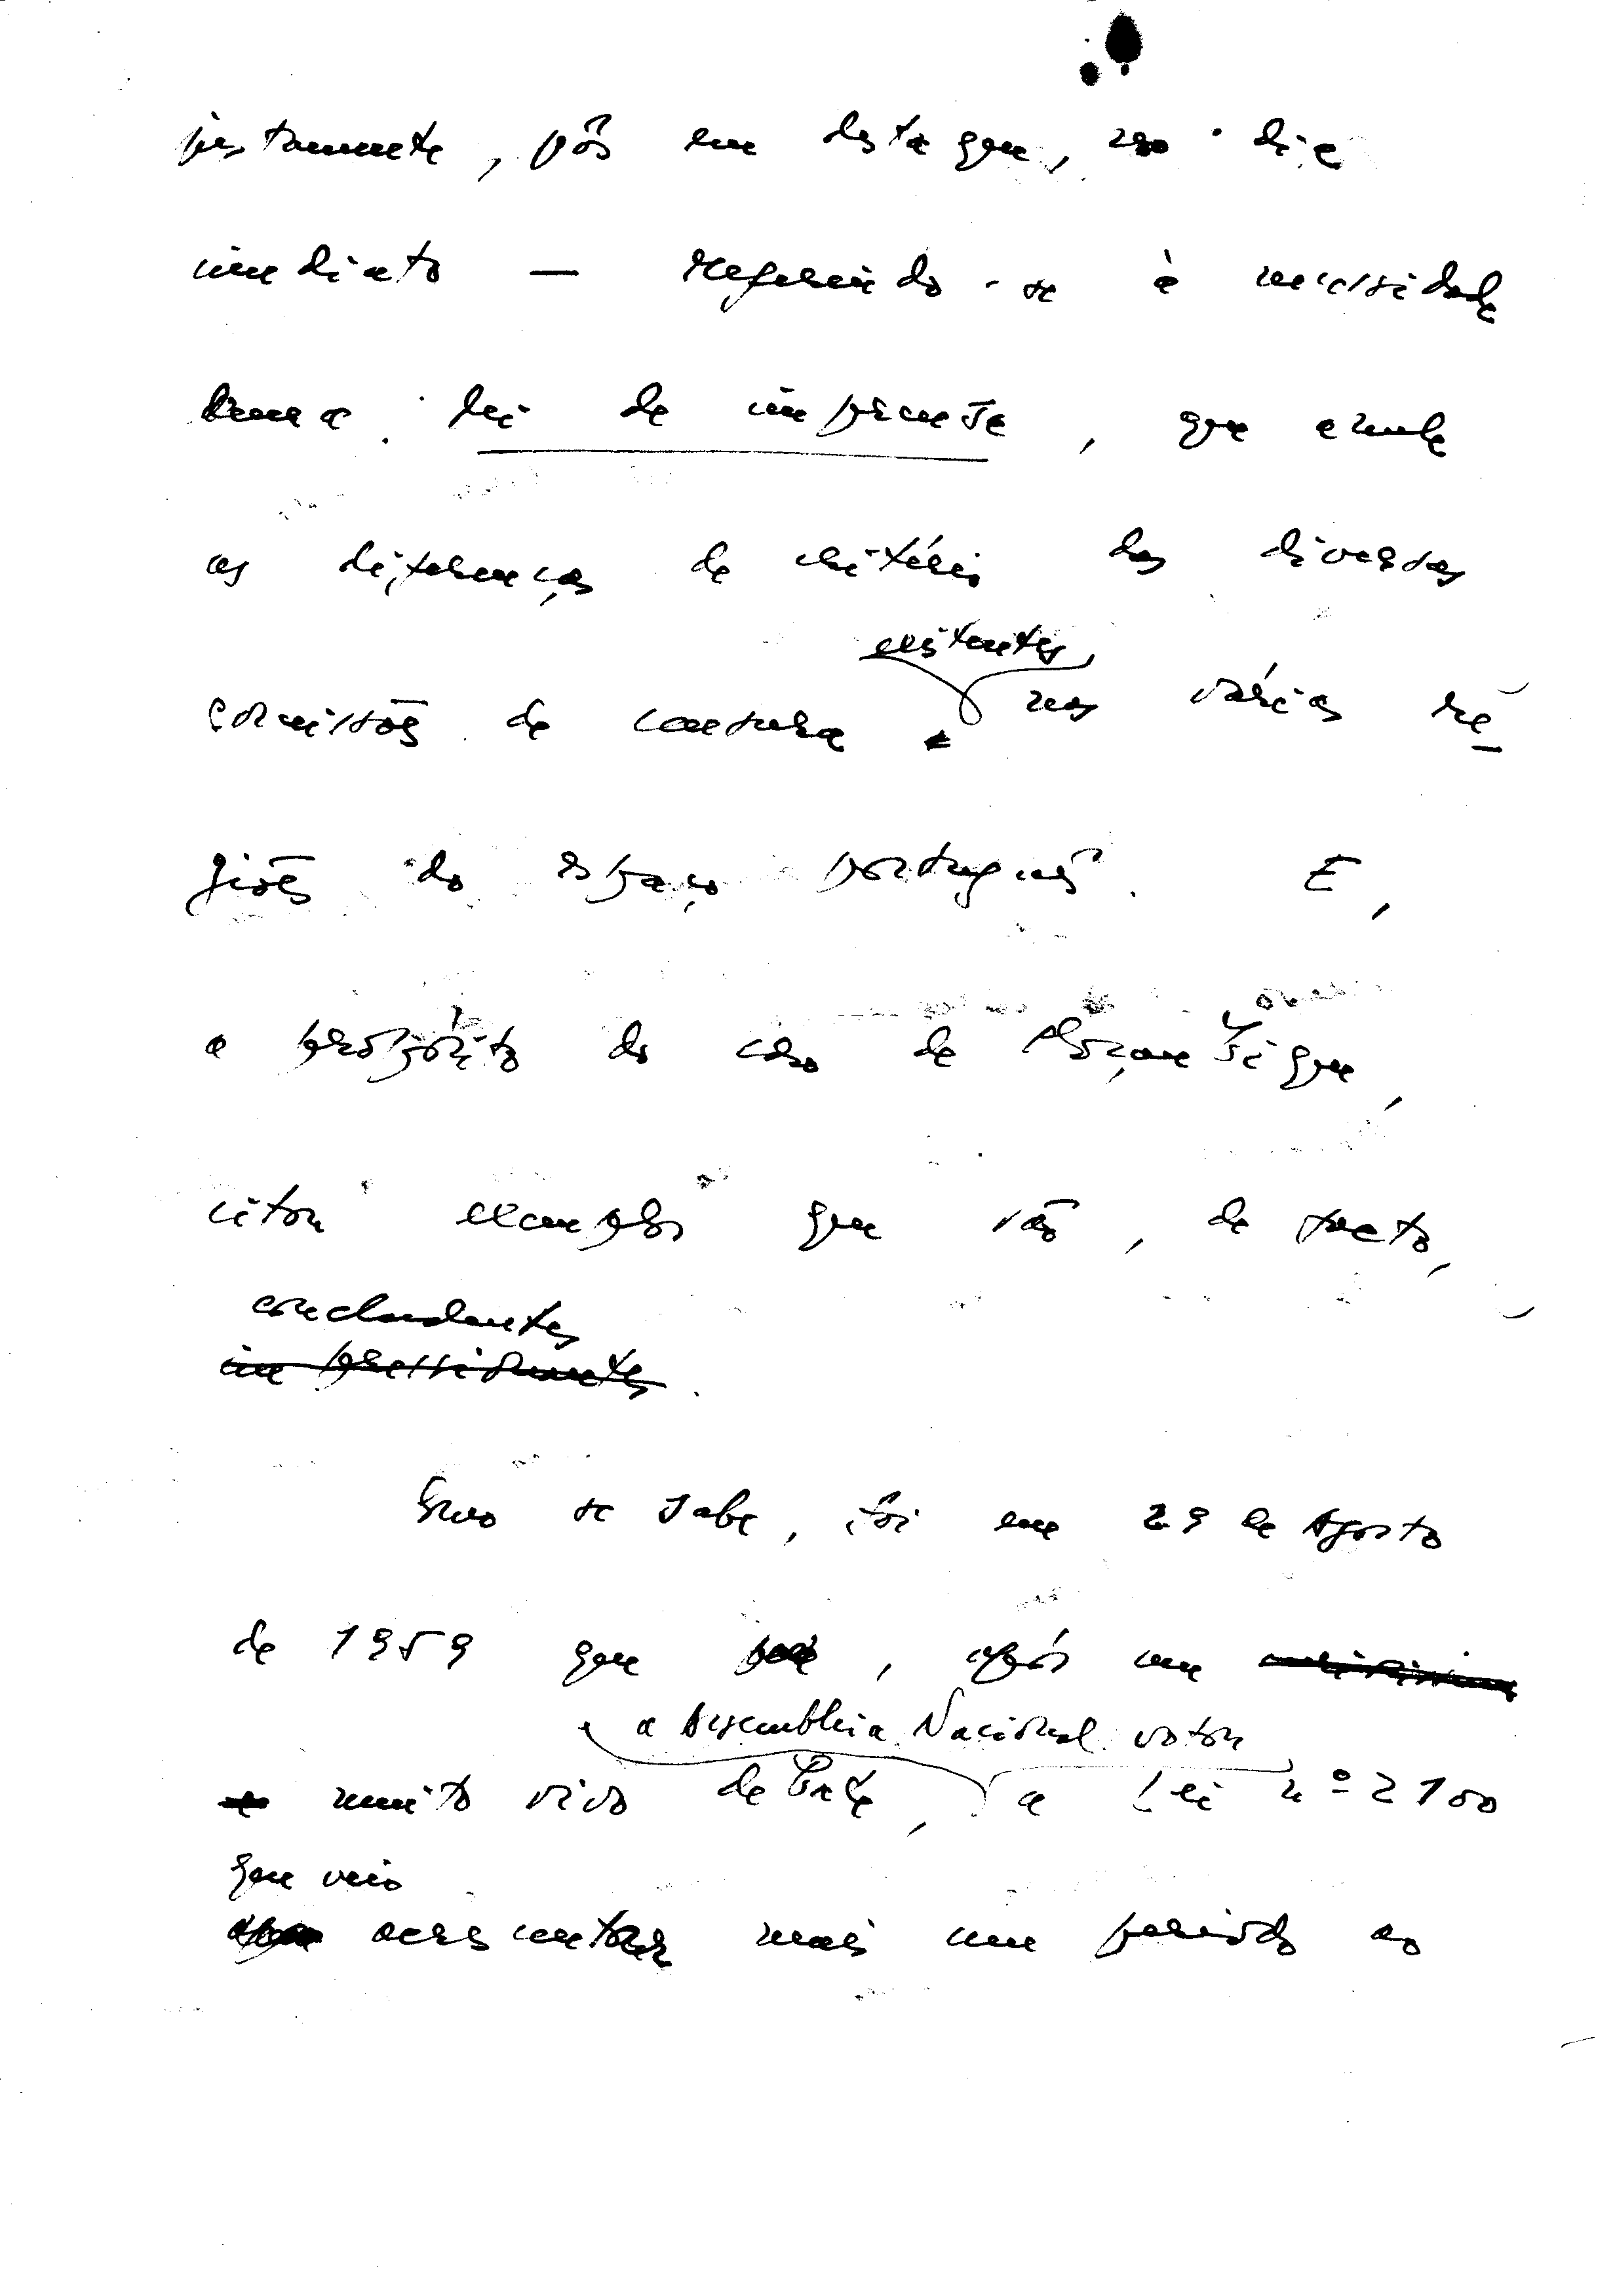 justamente, pôs em destaque, no dia
imediato — referindo-se à necessidade
duma lei de imprensa, que anule
as diferenças de critério das diversas
existentes
comissões de censura nas várias re-
giões do espaço português. E,
a propósito do caso de Moçambique,
citou exemplos que são, de facto,
concludentes
impressionantes.
Como se sabe, foi em 29 de Agosto
de 1959 que , após um
a Assembleia Nacional votou
muito vivo debate, a Lei nº 2100
que veio
acrescentar mais um período ao